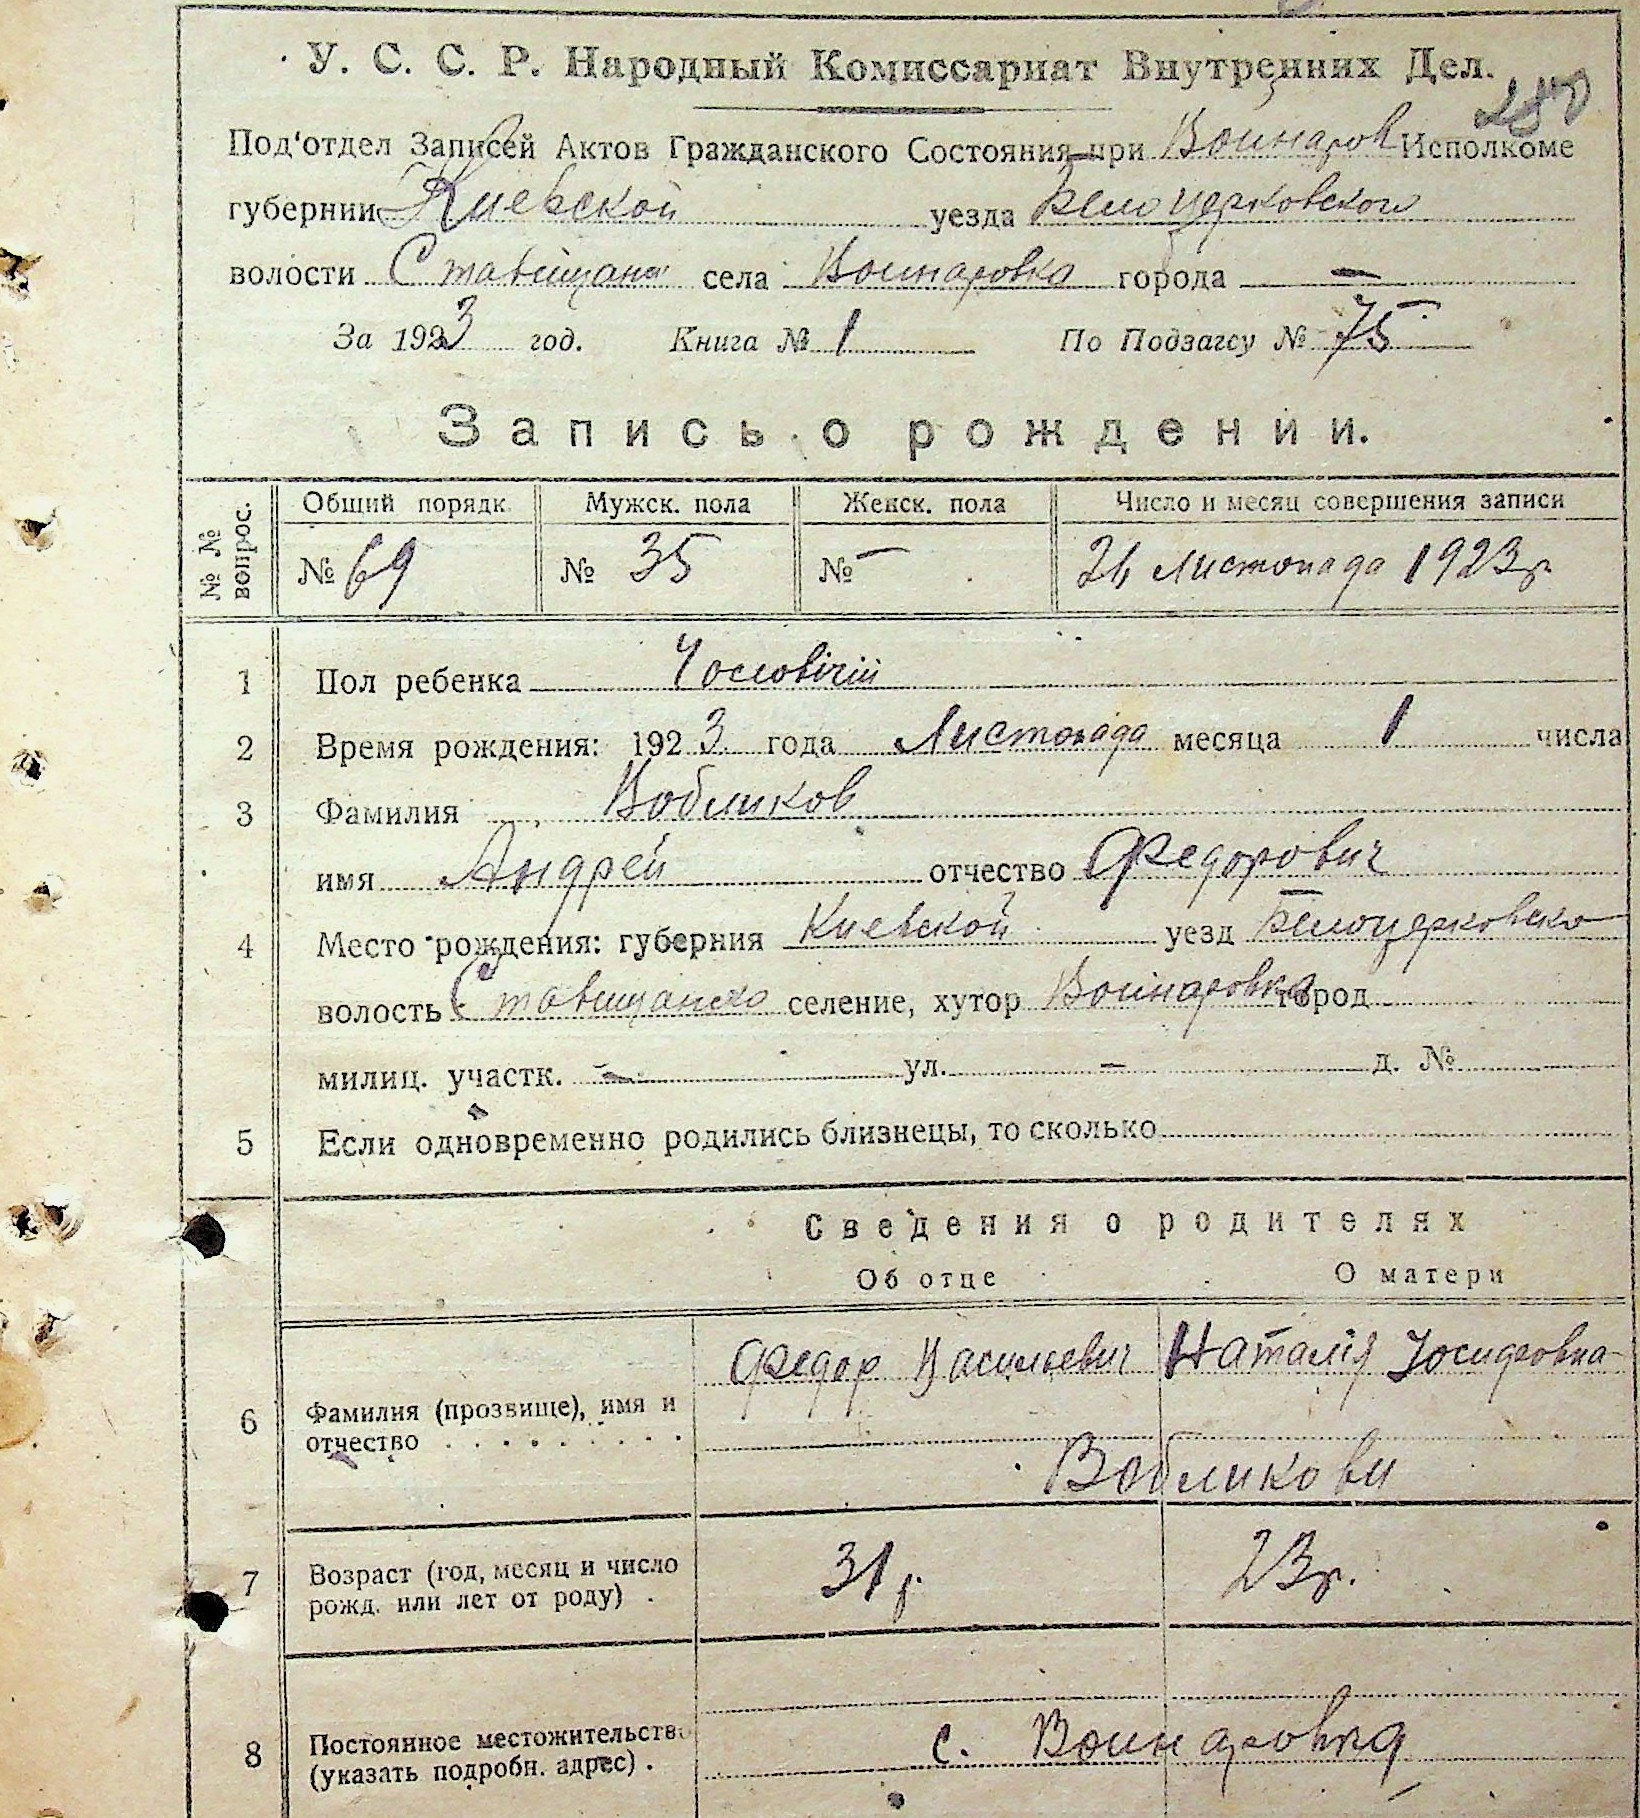 У. С. С. Р. Народный Комиссариат Внутренних Дел.
Под'отдел Записей Актов Гражданского Состояния при Воинаров Исполкоме
губернии Киевской уезда Белоцерковского
волости Ставищан села Воинаровка города —
За 1923 год. Книга № 1 По Подзагсу № 75
Запись о рождении.
№ № вопрос. Общий порядк. Мужск. пола Женск. пола Число и месяц совершения записи
№ 69 № 35 № — Листопада 1923 р.
1 Пол ребенка Чоловічій
2 Время рождения: 1923 года Листопада месяца 1 числа
3 Фамилия Вобликов
имя Андрей отчество Федорович
4 Место рождения: губерния Киевской уезд Белоцерковско
волость Ставищанско селение, хутор Воинаровка город
милиц. участк. — ул. — д. №
5 Если одновременно родились близнецы, то сколько
Сведения о родителях
Об отце О матери
Федор Васильевич Наталія Іосидовна
6 Фамилия (прозвище), имя и
отчество
Вобликови
7 Возраст (год, месяц и число
рожд. или лет от роду) . 31 р. 23 р.
8 Постоянное местожительство
(указать подробн. адрес) . с. Воинаровка